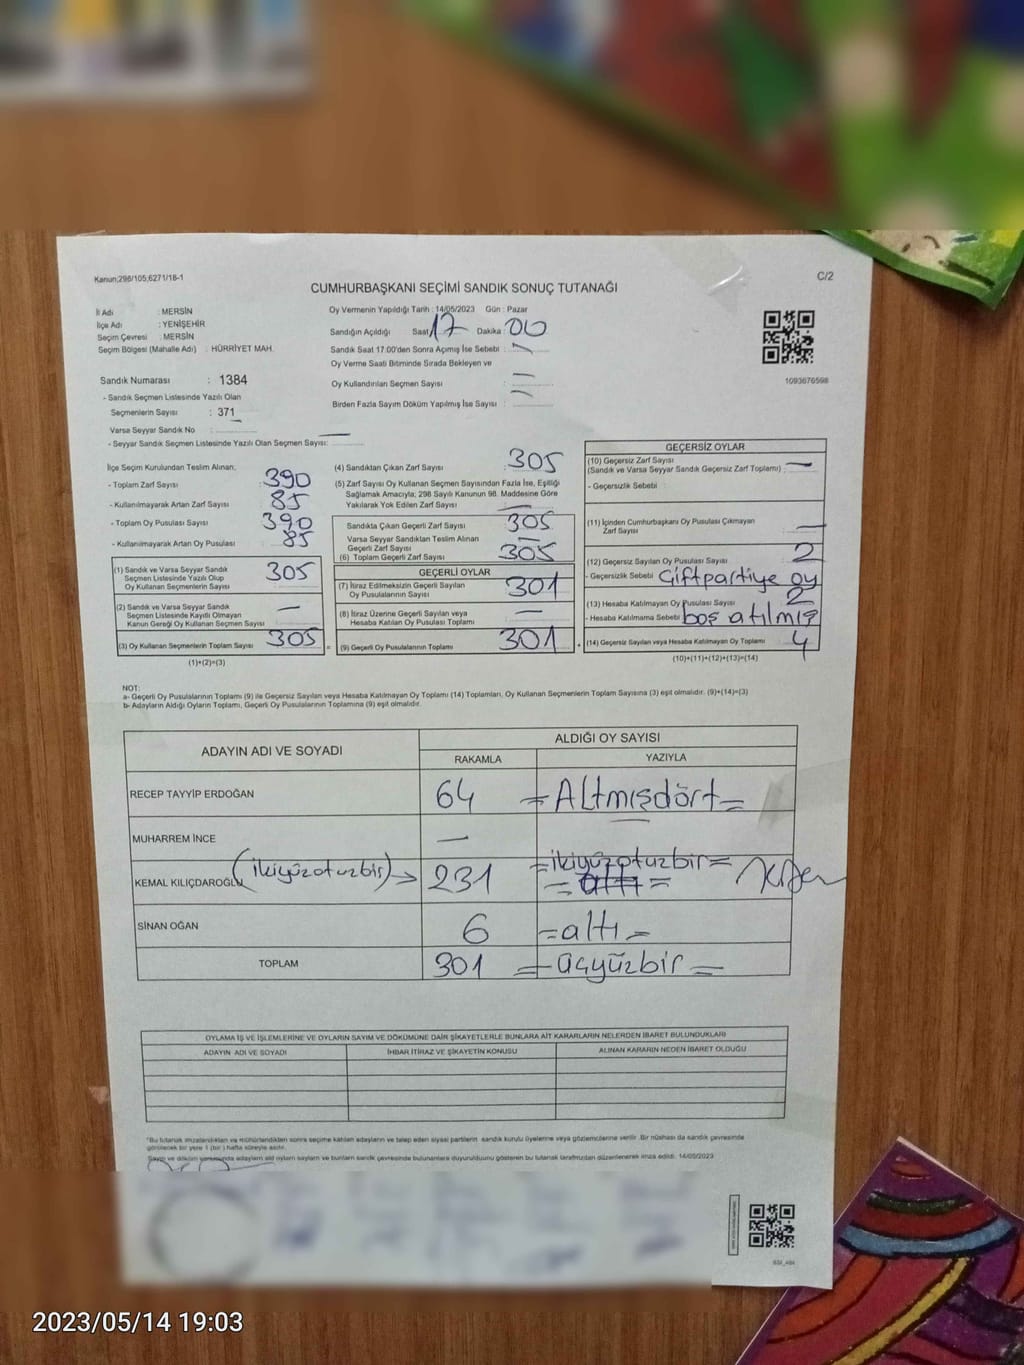 Kanun;298/105;6271/18-1
C/2
CUMHURBAŞKANI SEÇİMİ SANDIK SONUÇ TUTANAĞI
İl Adı : MERSİN
İlçe Adı : YENİŞEHİR
Seçim Çevresi : MERSİN
Seçim Bölgesi (Mahalle Adı) : HÜRRİYET MAH.
Oy Vermenin Yapıldığı Tarih : 14/05/2023 Gün : Pazar
Sandığın Açıldığı Saat 17 Dakika : 00
Sandık Saat 17:00'den Sonra Açımış İse Sebebi : —
Oy Verme Saati Bitiminde Sırada Bekleyen ve
Oy Kullandırılan Seçmen Sayısı : —
Birden Fazla Sayım Döküm Yapılmış İse Sayısı : —
1093676598
Sandık Numarası : 1384
- Sandık Seçmen Listesinde Yazılı Olan
Seçmenlerin Sayısı : 371
Varsa Seyyar Sandık No :
- Seyyar Sandık Seçmen Listesinde Yazılı Olan Seçmen Sayısı: —
İlçe Seçim Kurulundan Teslim Alınan;
- Toplam Zarf Sayısı : 390
- Kullanılmayarak Artan Zarf Sayısı : 85
- Toplam Oy Pusulası Sayısı : 390
- Kullanılmayarak Artan Oy Pusulası : 85
(1) Sandık ve Varsa Seyyar Sandık
Seçmen Listesinde Yazılı Olup
Oy Kullanan Seçmenlerin Sayısı : 305
(2) Sandık ve Varsa Seyyar Sandık
Seçmen Listesinde Kayıtlı Olmayan
Kanun Gereği Oy Kullanan Seçmen Sayısı : —
(3) Oy Kullanan Seçmenlerin Toplam Sayısı : 305
(1)+(2)=(3)
(4) Sandıktan Çıkan Zarf Sayısı : 305
(5) Zarf Sayısı Oy Kullanan Seçmen Sayısından Fazla İse, Eşitliği
Sağlamak Amacıyla; 298 Sayılı Kanunun 98. Maddesine Göre
Yakılarak Yok Edilen Zarf Sayısı : —
Sandıkta Çıkan Geçerli Zarf Sayısı : 305
Varsa Seyyar Sandıktan Teslim Alınan
Geçerli Zarf Sayısı : —
(6) Toplam Geçerli Zarf Sayısı : 305
GEÇERLİ OYLAR
(7) İtiraz Edilmeksizin Geçerli Sayılan
Oy Pusulalarının Sayısı : 301
(8) İtiraz Üzerine Geçerli Sayılan veya
Hesaba Katılan Oy Pusulası Toplamı : —
(9) Geçerli Oy Pusulalarının Toplamı : 301
GEÇERSİZ OYLAR
(10) Geçersiz Zarf Sayısı
(Sandık ve Varsa Seyyar Sandık Geçersiz Zarf Toplamı) : —
- Geçersizlik Sebebi :
(11) İçinden Cumhurbaşkanı Oy Pusulası Çıkmayan
Zarf Sayısı : —
(12) Geçersiz Sayılan Oy Pusulası Sayısı : 2
- Geçersizlik Sebebi : Çiftpartiye oy
(13) Hesaba Katılmayan Oy Pusulası Sayısı : 2
- Hesaba Katılmama Sebebi : boş atılmış
(14) Geçersiz Sayılan veya Hesaba Katılmayan Oy Toplamı : 4
(10)+(11)+(12)+(13)=(14)
NOT:
a- Geçerli Oy Pusulalarının Toplamı (9) ile Geçersiz Sayılan veya Hesaba Katılmayan Oy Toplamı (14) Toplamları, Oy Kullanan Seçmenlerin Toplam Sayısına (3) eşit olmalıdır. (9)+(14)=(3)
b- Adayların Aldığı Oyların Toplamı, Geçerli Oy Pusulalarının Toplamına (9) eşit olmalıdır.
ADAYIN ADI VE SOYADI
ALDIĞI OY SAYISI
RAKAMLA
YAZIYLA
RECEP TAYYİP ERDOĞAN 64 = Altmışdört =
MUHARREM İNCE —
KEMAL KILIÇDAROĞLU (ikiyüzotuzbir) → 231 = ikiyüzotuzbir =
= altı =
SİNAN OĞAN 6 = altı =
TOPLAM 301 = üçyüzbir =
OYLAMA İŞ VE İŞLEMLERİNE VE OYLARIN SAYIM VE DÖKÜMÜNE DAİR ŞİKAYETLERLE BUNLARA AİT KARARLARIN NELERDEN İBARET BULUNDUKLARI
ADAYIN ADI VE SOYADI
İHBAR İTİRAZ VE ŞİKAYETİN KONUSU
ALINAN KARARIN NEDEN İBARET OLDUĞU
"Bu tutanak imzalandıktan ve mühürlendikten sonra seçime katılan adayların ve talep eden siyasi partilerin sandık kurulu üyelerine veya gözlemcilerine verilir. Bir nüshası da sandık çevresinde
görülecek bir yere 1 (bir) hafta süreyle asılır.
14/05/2023
2023/05/14 19:03